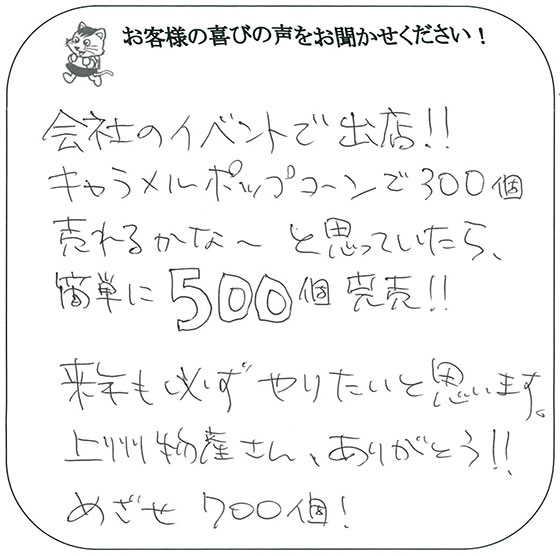 お客様の喜びの声をお聞かせください！
会社のイベントで出店!!
キャラメルポップコーンで300個
売れるかな〜 と思っていたら、
簡単に500個完売!!
来年も必ずやりたいと思います。
上州物産さん、ありがとう!!
めざせ 700個!